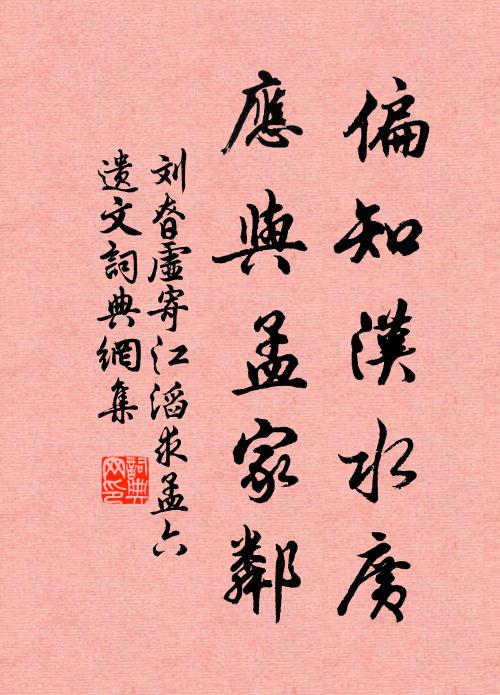 偏知漢水廣
應與孟家鄰
刘眘虛寄江滔求孟六
遗文詞典網集
詞典网印